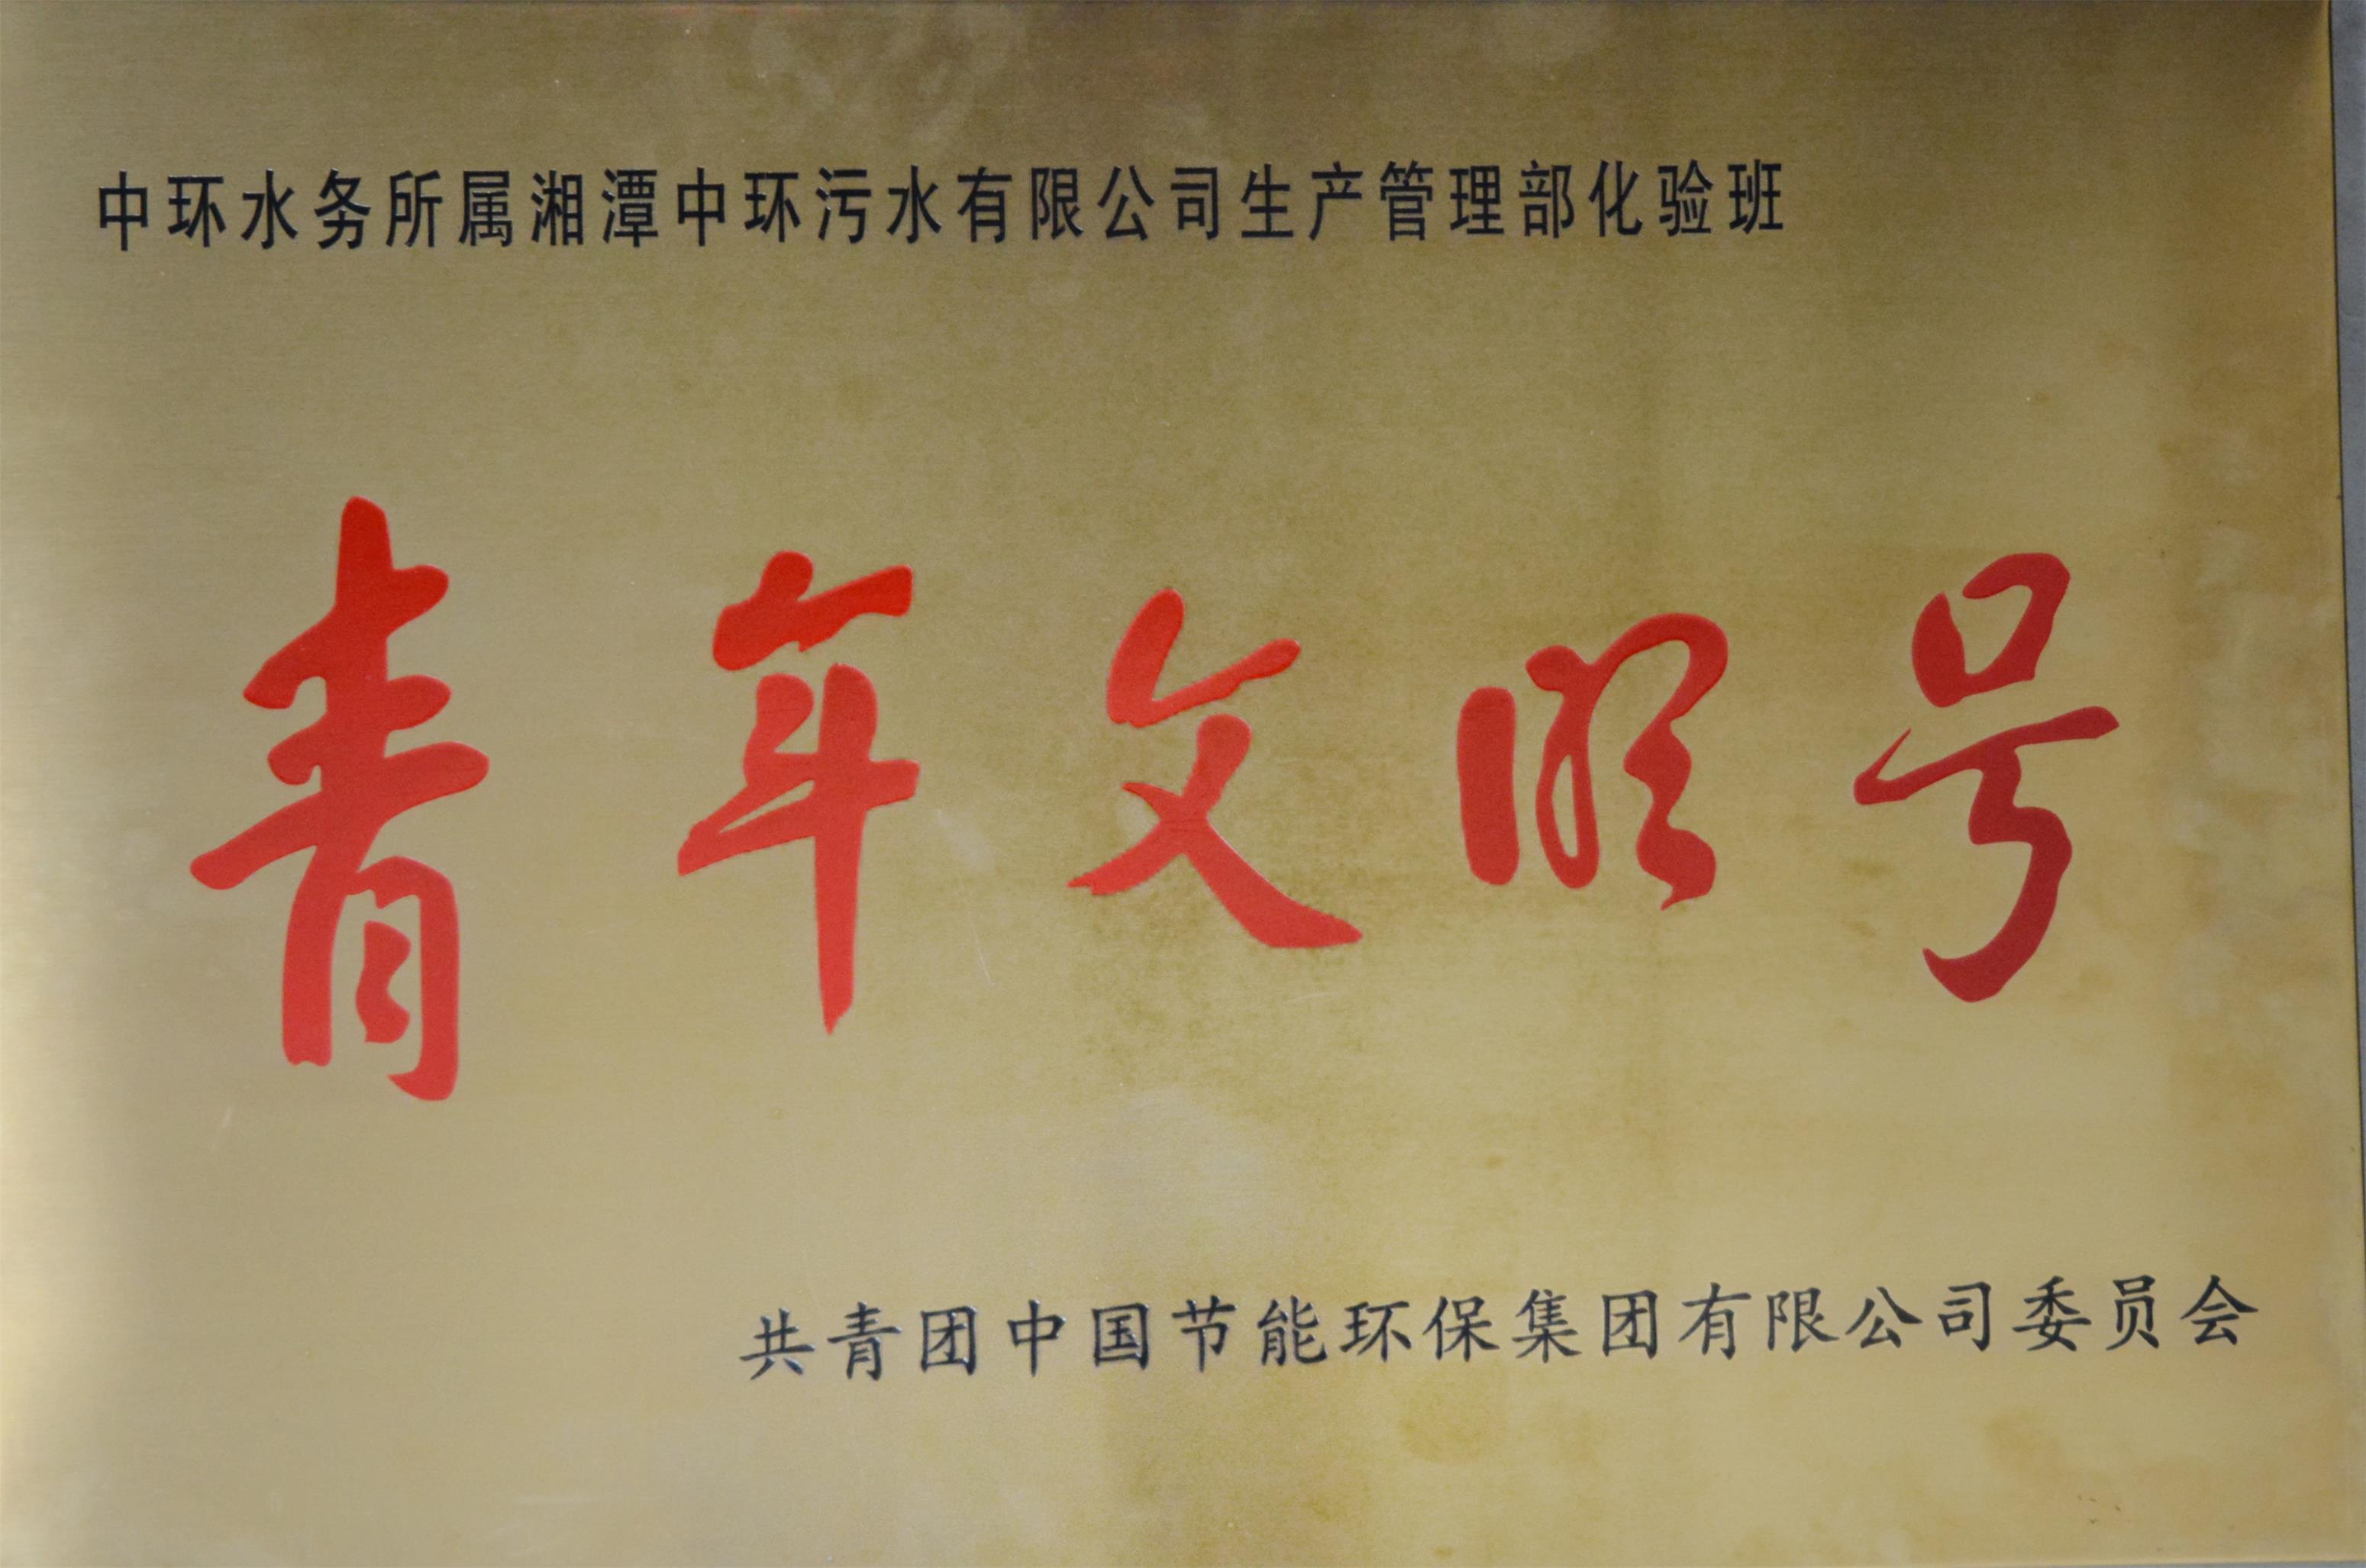 中环水务所属湘潭中环污水有限公司生产管理部化验班
青年文明号
共青团中国节能环保集团有限公司委员会